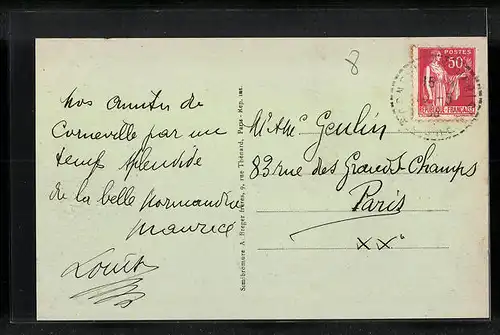 8
Nos amitiés de
Corneville par un
temps splendide
de la belle Normandie
Maurice
Louise
Semibromure A. Breger frères, 9, rue Thénard, Paris - Rep. int.
POSTES
50c
REPUBLIQUE FRANÇAISE
Mr Me Genlin
83 rue des Grands-Champs
Paris
XXe